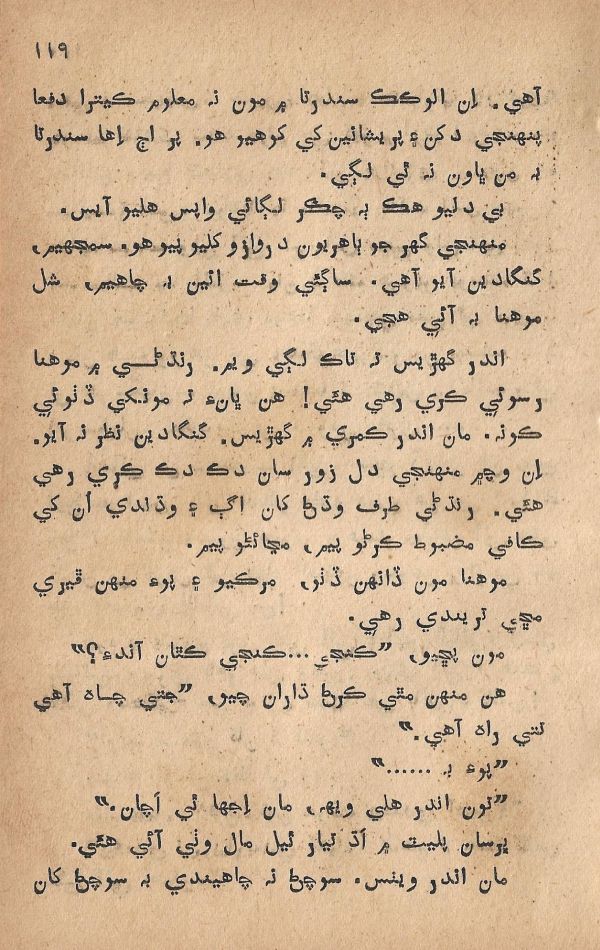 ١١٩
آهي. اِن الوڪڪ سندرتا ۾ مون نہ معلوم ڪيترا دفعا
پنهنجي دکن ۽ پريشانين کي کوهيو هو. پر اڄ اِها سندرتا
بہ من ڀاون نہ ٿي لڳي.
بي دليو هڪ ٻہ چڪر لڳائي واپس هليو آيس.
منهنجي گهر جو ٻاهريون دروازو کليو پيو هو. سمجهيم،
گنگادين آيو آهي. ساڳئي وقت ائين بہ چاهيم، شل
موهنا بہ آئي هجي.
اندر گهڙيس تہ ٺاڪ لڳي ويم. رنڌڻــي ۾ موهنا
رسوئي ڪري رهي هئي! هن ڀانءِ تہ مونکي ڏٺوئي
ڪونہ. مان اندر ڪمري ۾ گهڙيس. گنگادين نظر نہ آيو.
اِن وچ۾ منهنجي دل زور سان دڪ دڪ ڪري رهي
هئي. رنڌڻي طرف وڌڻ کان اڳ ۽ وڌندي اُن کي
ڪافي مضبوط ڪرڻو پيم، مڃائڻو پيم.
موهنا مون ڏانهن ڏٺو، مرڪيو ۽ پوءِ منهن ڦيري
مڇي تريندي رهي.
مون پڇيو، ”ڪنجي...ڪنجي ڪٿان آندءِ؟“
هن منهن مٿي ڪرڻ ڌاران چيو، ”جتي چــاهہ آهي
تتي راهہ آهي.“
”پوءِ بہ ......“
”تون اندر هلي ويهہ، مان اِجها ٿي اَچان.“
ڀرسان پليٽ ۾ اَڌ تيار ٿيل مال وٺي آئي هئي.
مان اندر ويٺس. سوچڻ نہ چاهيندي بہ سوچڻ کان